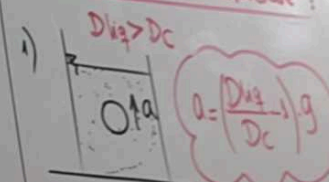 Dliq > Dc
1)
a
a = (Dliq/Dc - 1) g